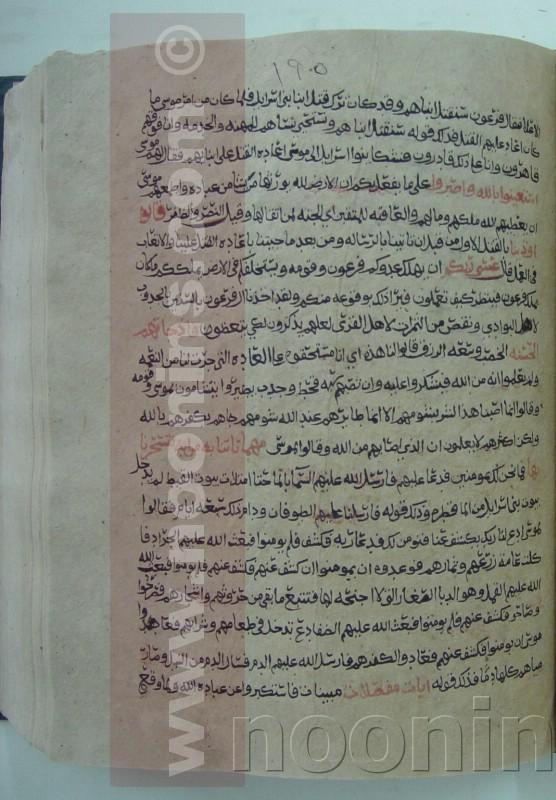 ١٩٠٥
الاعلا فقال فرعون سنقتل ابناهم وقد كان ترك قتل ابنا بنى اسرايل فلما كان من امر موسى ما
كان اعاد عليهم القتل فذلك قوله سنقتل ابناهم ونستحيى نساهم للمهنه والخدمه وانا فوقهم
قاهرون وانا على ذلك قادرون فشكا بنوا اسرايل الى موسى اعاده القتل على ابنايهم فقال لهم موسى
استعينوا بالله واصبروا على ما يفعل بكم ان الارض لله يورثها من يشا من عباده واطمعهم موسى
ان يعطيهم الله ملكهم ومالهم والعاقبه للمتقين اى الجنه لمن اتقا وقيل النصر والظفر قالوا
اوذينا بالقتل الاول من قبل ان تاتينا بالرساله ومن بعد ما جيتنا باعاده القتل علينا والاتعاب
فى العمل قال عسى ربكم ان يهلك عدوكم فرعون وقومه ويستخلفكم فى الارض
فينظر كيف تعملون فراوا ذلك بوقوعه منكم ولقد اخذنا ال فرعون بالسنين
لاهل البوادى ونقص من الثمرات لاهل القرى لعلهم يذكرون لكى يتعظون فاذا جاتهم
الحسنه الخصب وسعه الرزق قالوا لنا هذه اى انا مستحقوه على العاده التى جرت لنا من النعمه
ولم يعلموا انه من الله فيشكروا عليه وان تصبهم سيه قحط وجدب يطيروا يتشامون بموسى وقومه
وقالوا انما اصبنا هذا الشر بشومهم الا انما طايرهم عند الله شومهم جاهم بكفرهم بالله
ولكن اكثرهم لا يعلمون ان الذى اصابهم من الله وقالوا لموسى مهما تاتنا به من ايه لتسحرنا
بها فما نحن لك بمومنين فدعا عليهم فارسل الله عليهم السما بالما حتا امتلات بيوت القبط ولم يدخل
بيوت بنى اسرايل من الما قطره فذلك قوله فارسلنا عليهم الطوفان ودام ذلك سبعه ايام فقالوا
لموسى ادع لنا ربك يكشف عنا فنومن لك فدعا ربه فكشف فلم يومنوا فبعث الله عليهم الجراد فا
كلت عامه زرعهم وثمارهم فوعدوه ان يومنوا ان كشف عنهم فكشف عنهم فلم يومنوا فبعث الله
الله عليهم القمل وهو الدبا الصغار التى لا اجنحه لها فتتبع ما بقى من حروثهم واشجارهم
فكشف عنهم فلم يومنوا فبعث الله عليهم الضفادع تدخل فى طعامهم وشرابهم فعاهدوا
موسى ان يومنوا فكشف عنهم فعادوا لكفرهم فارسل الله عليهم الدم فسال الدم من النيل وصارت
مياههم كلها دما فذلك قوله ايات مفصلات مبينات فاستكبروا عن عباده الله ولما وقع
© www.noorins.com
noonin